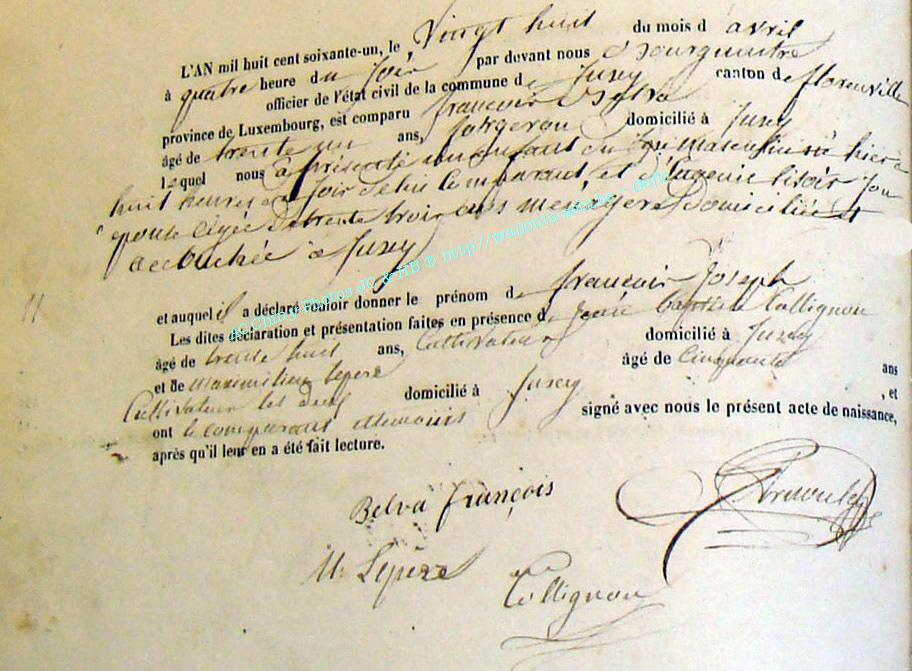 L'AN mil huit cent soixante-un, le Vingt huit du mois d avril
à quatre heure du soir par devant nous Bourgmestre
officier de l'état civil de la commune de Jusey canton de florenville
province de Luxembourg, est comparu francois Belva
âgé de trente un ans, forgeron domicilié à Jusey
lequel nous a présenté un enfant du sexe masculin né hier à
huit heures du soir de lui comparant, et d'Eugenie son
épouse agée de trente trois ans menagere domiciliée et
accouchée à Jusey
11
et auquel il a déclaré vouloir donner le prénom de francois Joseph
Les dites déclaration et présentation faites en présence de Jean baptiste Collignon
âgé de trente huit ans, Cultivateur domicilié à Jusey
et de Maximilien lepere âgé de Cinquante ans
Cultivateur les deux domicilié à Jusey , et
ont le comparant et temoins signé avec nous le présent acte de naissance,
après qu'il leur en a été fait lecture.
Belva françois
M. Lepere
Collignon